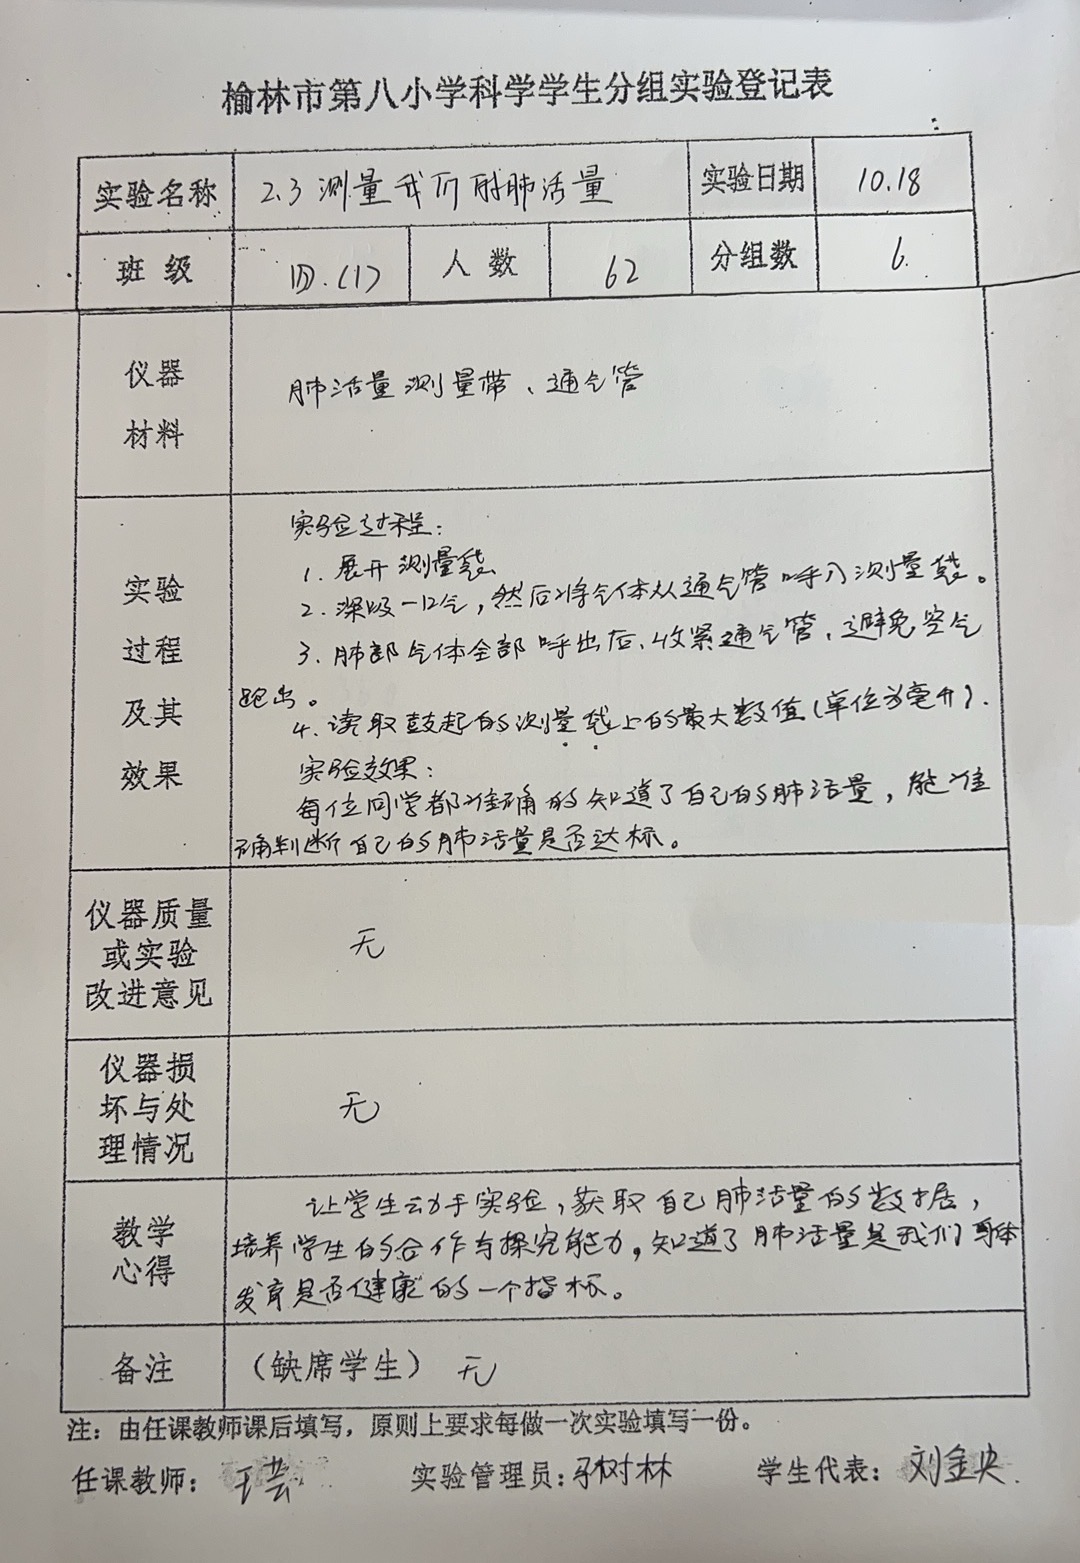 榆林市第八小学科学学生分组实验登记表
实验名称 2.3 测量我们的肺活量 实验日期 10.18
班级 四.(1) 人数 62 分组数 6.
仪器
材料
肺活量测量带、通气管
实验
过程
及其
效果
实验过程:
1. 展开测量袋
2. 深吸一口气,然后将气体从通气管呼入测量袋。
3. 肺部气体全部呼出后、收紧通气管、避免空气
跑出。
4. 读取鼓起的测量袋上的最大数值(单位为毫升).
实验效果:
每位同学都准确的知道了自己的肺活量,能准
确判断自己的肺活量是否达标。
仪器质量
或实验
改进意见
无
仪器损
坏与处
理情况
无
教学
心得
让学生动手实验,获取自己肺活量的数据,
培养学生的合作与探究能力。知道了肺活量是我们身体
发育是否健康的一个指标。
备注 (缺席学生) 无
注:由任课教师课后填写,原则上要求每做一次实验填写一份。
任课教师: 王芸 实验管理员: 树林 学生代表: 刘金央.